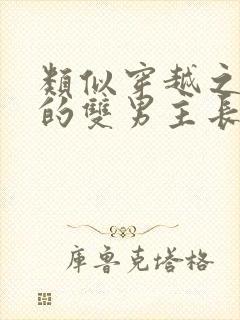 類似穿越之
的雙男主長
庫魯克塔格